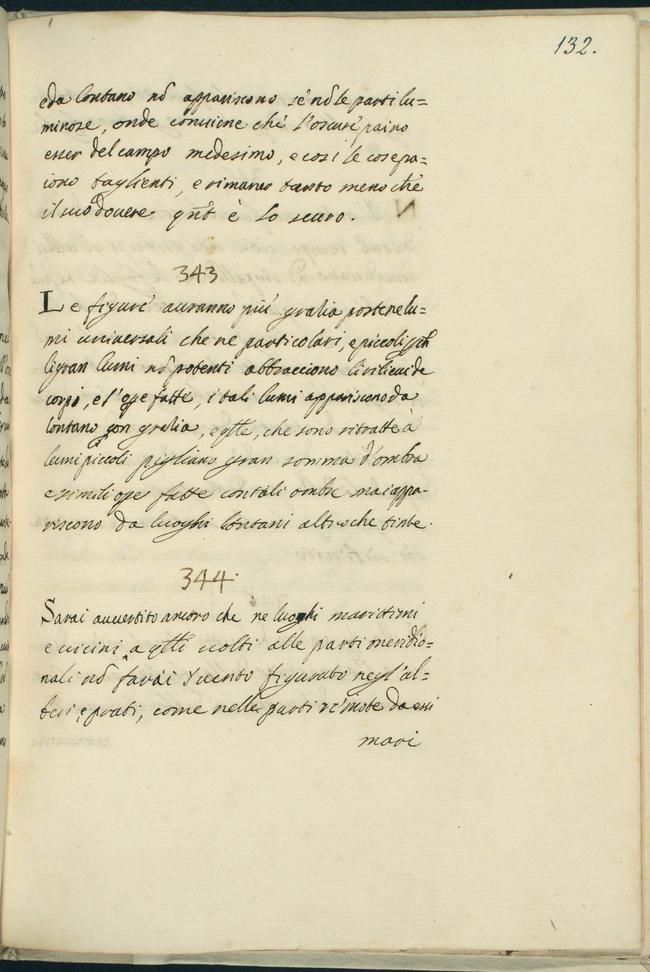 132.
eda lontano nō appariscono sé nō le parti lu=
minose, onde conuiene che l'oscuré paino
esser del campo medesimo, e così le cose pa=
iono taglienti, e rimaneo tanto meno ché
il suo douere qnt̄ è lo scuro.
343
Le figuré auranno più gratia poste ne lu=
mi uniuersali che ne particolari, e piccoli, pch
li gran lumi nō potenti abbracciono li rilieui de
corpi, e l'ope fatte, i tali lumi appariscono da
lontano con gratia, e qlle, che sono ritratte à
lumi piccoli pigliano gran somma d'ombra
e simili ope fatte con tali ombre mai appa=
riscono da luoghi lontani altro che tinte.
344.
Sarai auuertito ancora che ne luoghi marittimi
e uicini a qlli uolti alle parti meridio=
nali nō farai Y uento figurato negl'al=
beri e prati, come nelle parti rimote da essi
mari